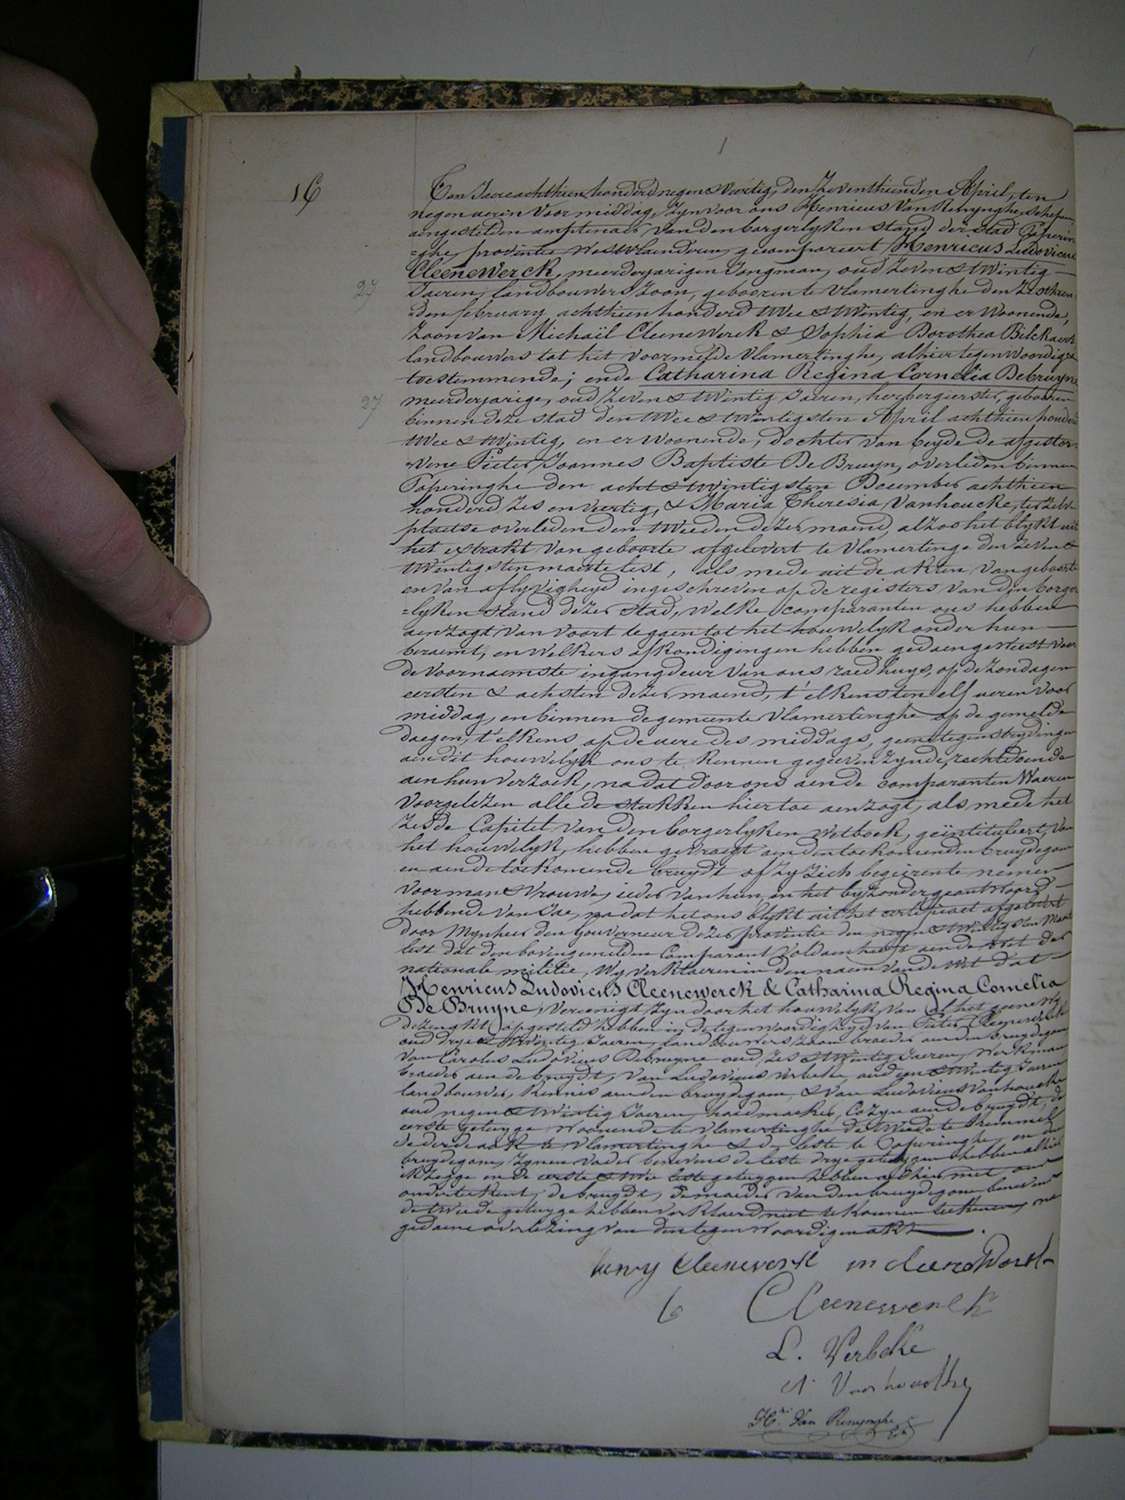 16
Ten Jaere achthien honderd negen & veertig, den zeventhienden April, ten
negen ueren voormiddag, zyn voor ons Henricus Van Renynghe, schepen
aengestelden amptenaer van den borgerlyken stand der stad Poperin-
-ghe, provintie Westvlaenderen, gecompareert Henricus Ludovicus
Cleenewerck, meerderjarigen Jongman, oud zeven & twintig
27
Jaeren, landbouwers zoon, geboren te Vlamertinghe den zesthien-
-den february achthien honderd twee & twintig, en er woonende,
zoon van Michaël Cleenewerck & Sophia Dorothea Bilckaert
landbouwers tot het voormelde Vlamertinghe, alhier tegenwoordig &
toestemmende; ende Catharina Regina Cornelia Debruyne
27
meerderjarige, oud zeven & twintig Jaeren, herbergierster, geboren
binnen deze stad den twee & twintigsten April achthien honderd
twee & twintig, en er woonende, dochter van beyde de afgestor-
-vene Pieter Joannes Baptiste De Bruyn, overleden binnen
Poperinghe den acht & twintigsten December achthien
honderd zes en veertig, & Maria Theresia Vanhoucke, ter zelve
plaetse overleden den tweeden dezer maend, alzoo het blykt uit
het extrakt van geboorte afgelevert te Vlamertinge den zeven &
twintigsten maerte lest, als mede uit de akten van geboorte
en van aflyvigheyd ingeschreven op de registers van den borger-
-lyken stand dezer stad, welke comparanten ons hebben
aenzogt van voort te gaen tot het houwelyk onder hun
beraemt, en welkers afkondigingen hebben gedaen geweest voor
de voornaemste ingangdeur van ons raedhuys, op de zondagen
eersten & achsten dezer maend, t'elkens ten elf ueren voor
middag, en binnen de gemeente Vlamertinghe op de gemelde
daegen, t'elkens op de uere des middags, geene tegenstrydingen
aen dit houwelyk ons te kennen gegeven zynde, rechtdoende
aen hun verzoek, na dat door ons aen de comparanten waeren
voorgelezen alle de stukken hier toe aenzogt, als mede het
zesde Capitel van den borgerlyken wetboek, geïntituleert, van
het houwelyk, hebben gevraegt aen den toekomenden bruydegom
en aen de toekomende bruydt of zy zich begeerente nemen
voor man & vrouwe, ieder van hun en het byzonder geantwoord
hebbende van Jae, na dat het ons blykt uit het certificaet afgelevert
door Mynheer den Gouverneur dezer provintie den negen & twintigsten Maert
lest dat den bovengemelden comparant voldaen heeft aen de wet der
nationale militie, wy verklaeren in den naem van de wet dat
Henricus Ludovicus Cleenewerck & Catharina Regina Cornelia
De Bruyne, vereenigt zyn door het houwelyk, van al het geene wy
dezen akt opgesteld hebben in de tegenwoordigheyd van Pieter Cleenewerck
oud drye & twintig Jaeren, landbouwers zoon, broeder aen den bruydegom
van Carolus Ludovicus Debruyne oud zes & twintig Jaeren, werkman
broeder aen de bruydt, van Ludovicus Verbeke, oud & twintig Jaeren
landbouwer, kennis aen den bruydegom, & van Ludovicus Vanhoucke
oud negen & twintig Jaeren, cozyn aen de bruydt, de
eerste getuyge woonende te Vlamertinghe de tweede te Kemmel
de derde ook te Vlamertinghe & de leste te Poperinghe, en den
bruydegom, zynen vader benevens de leste drye getuygen hebben
ik zegge en de eerste & twee leste getuygen hebben alhier met ons
onderteekent, de bruydt, de moeder van den bruydegom benevens
de tweede getuyge hebben verklaerd niet te konnen teekenen, na
gedaene overlezing van den tegenwoordigen akt.
henry Cleenewerk m cleenewerk
Cleenewerck
L. Verbeke
Hri Van Renynghe